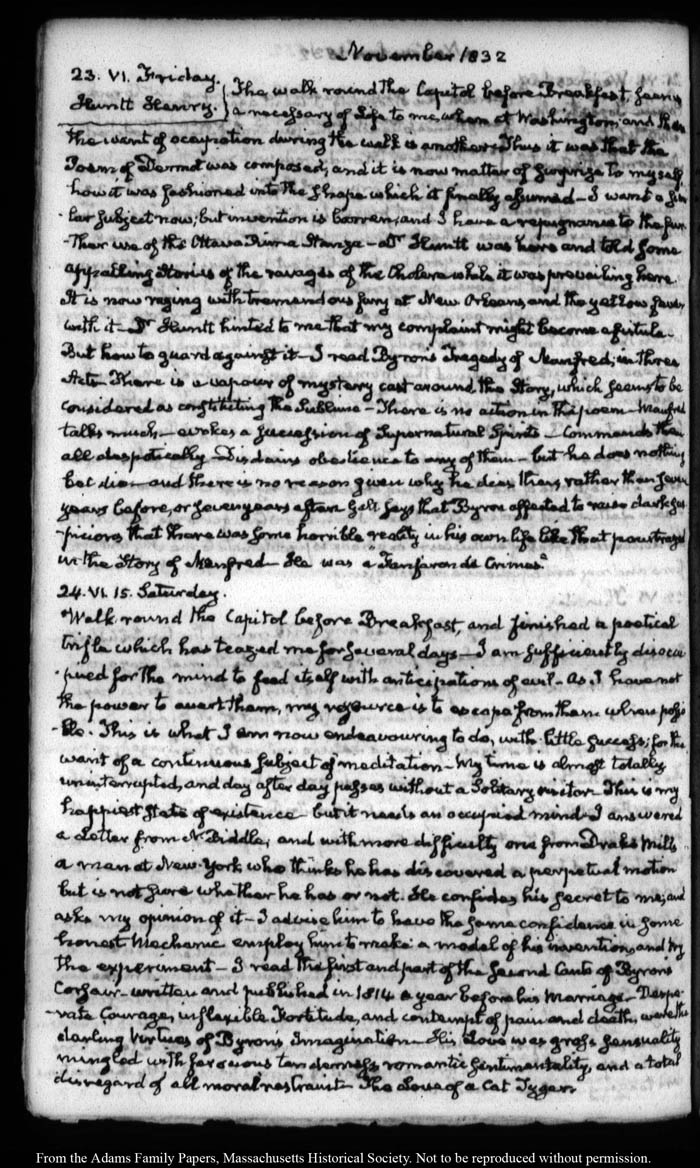 November 1832
23. VI. Friday.
Huntt Henry. } The walk round the Capitol before Breakfast, seems
a necessary of Life to me, when at Washington; and then
the want of occupation during the walk is another. Thus it was that the
Poem of Dermot was composed; and it is now matter of surprize to myself
how it was fashioned into the shape which it finally assumed — I want a simi
-lar subject now; but invention is barren; and I have a repugnance to the fur
-ther use of the Ottava Rima Stanza — Dr Huntt was here and told some
appalling stories of the ravages of the Cholera while it was prevailing here.
It is now raging with tremendous fury at New Orleans, and the yellow fever
with it — Dr Huntt hinted to me that my complaint might become a fistula.
But how to guard against it — I read Byron's Tragedy of Manfred, in three
Acts. There is a vapour of mystery cast around the Story, which seems to be
considered as constituting the Sublime — There is no action in the poem — Manfred
talks much — evokes a succession of Supernatural Spirits — Commands them
all despotically — Disdains obedience to any of them — but he does nothing
but die — and there is no reason given why he dies then, rather than seven
years before, or seven years after. Galt says that Byron affected to raise dark sus
-picions, that there was some horrible reality in his own life like that pourtrayed
in the Story of Manfred — He was a "Fanfaron de Crimes."
24. VI. 15. Saturday.
Walk round the Capitol before Breakfast, and finished a poetical
trifle which has teazed me for several days — I am sufficiently disoccu
-pied for the mind to feed itself with anticipations of evil — As I have not
the power to avert them, my resource is to escape from them when possi
-ble. This is what I am now endeavouring to do, with little success; for the
want of a continuous subject of meditation — My time is almost totally
uninterrupted, and day after day passes without a solitary visitor. This is my
happiest state of existence — but it needs an occupied mind — I answered
a Letter from N. Biddle, and with more difficulty one from Drake Mills
a man at New-York who thinks he has discovered a perpetual motion
but is not sure whether he has or not. He confides his secret to me, and
asks my opinion of it — I advise him to have the same confidence in some
honest Mechanic employ him to make a model of his invention, and try
the experiment — I read the first and part of the second Canto of Byron's
Corsair — written and published in 1814 a year before his Marriage — Despe
-rate Courage, inflexible Fortitude, and contempt of pain and death, were the
darling Virtues of Byron's Imagination — His Love was gross sensuality
mingled with ferocious tenderness, romantic sentimentality, and a total
disregard of all moral restraint — The Love of a Cat Tyger.
From the Adams Family Papers, Massachusetts Historical Society. Not to be reproduced without permission.